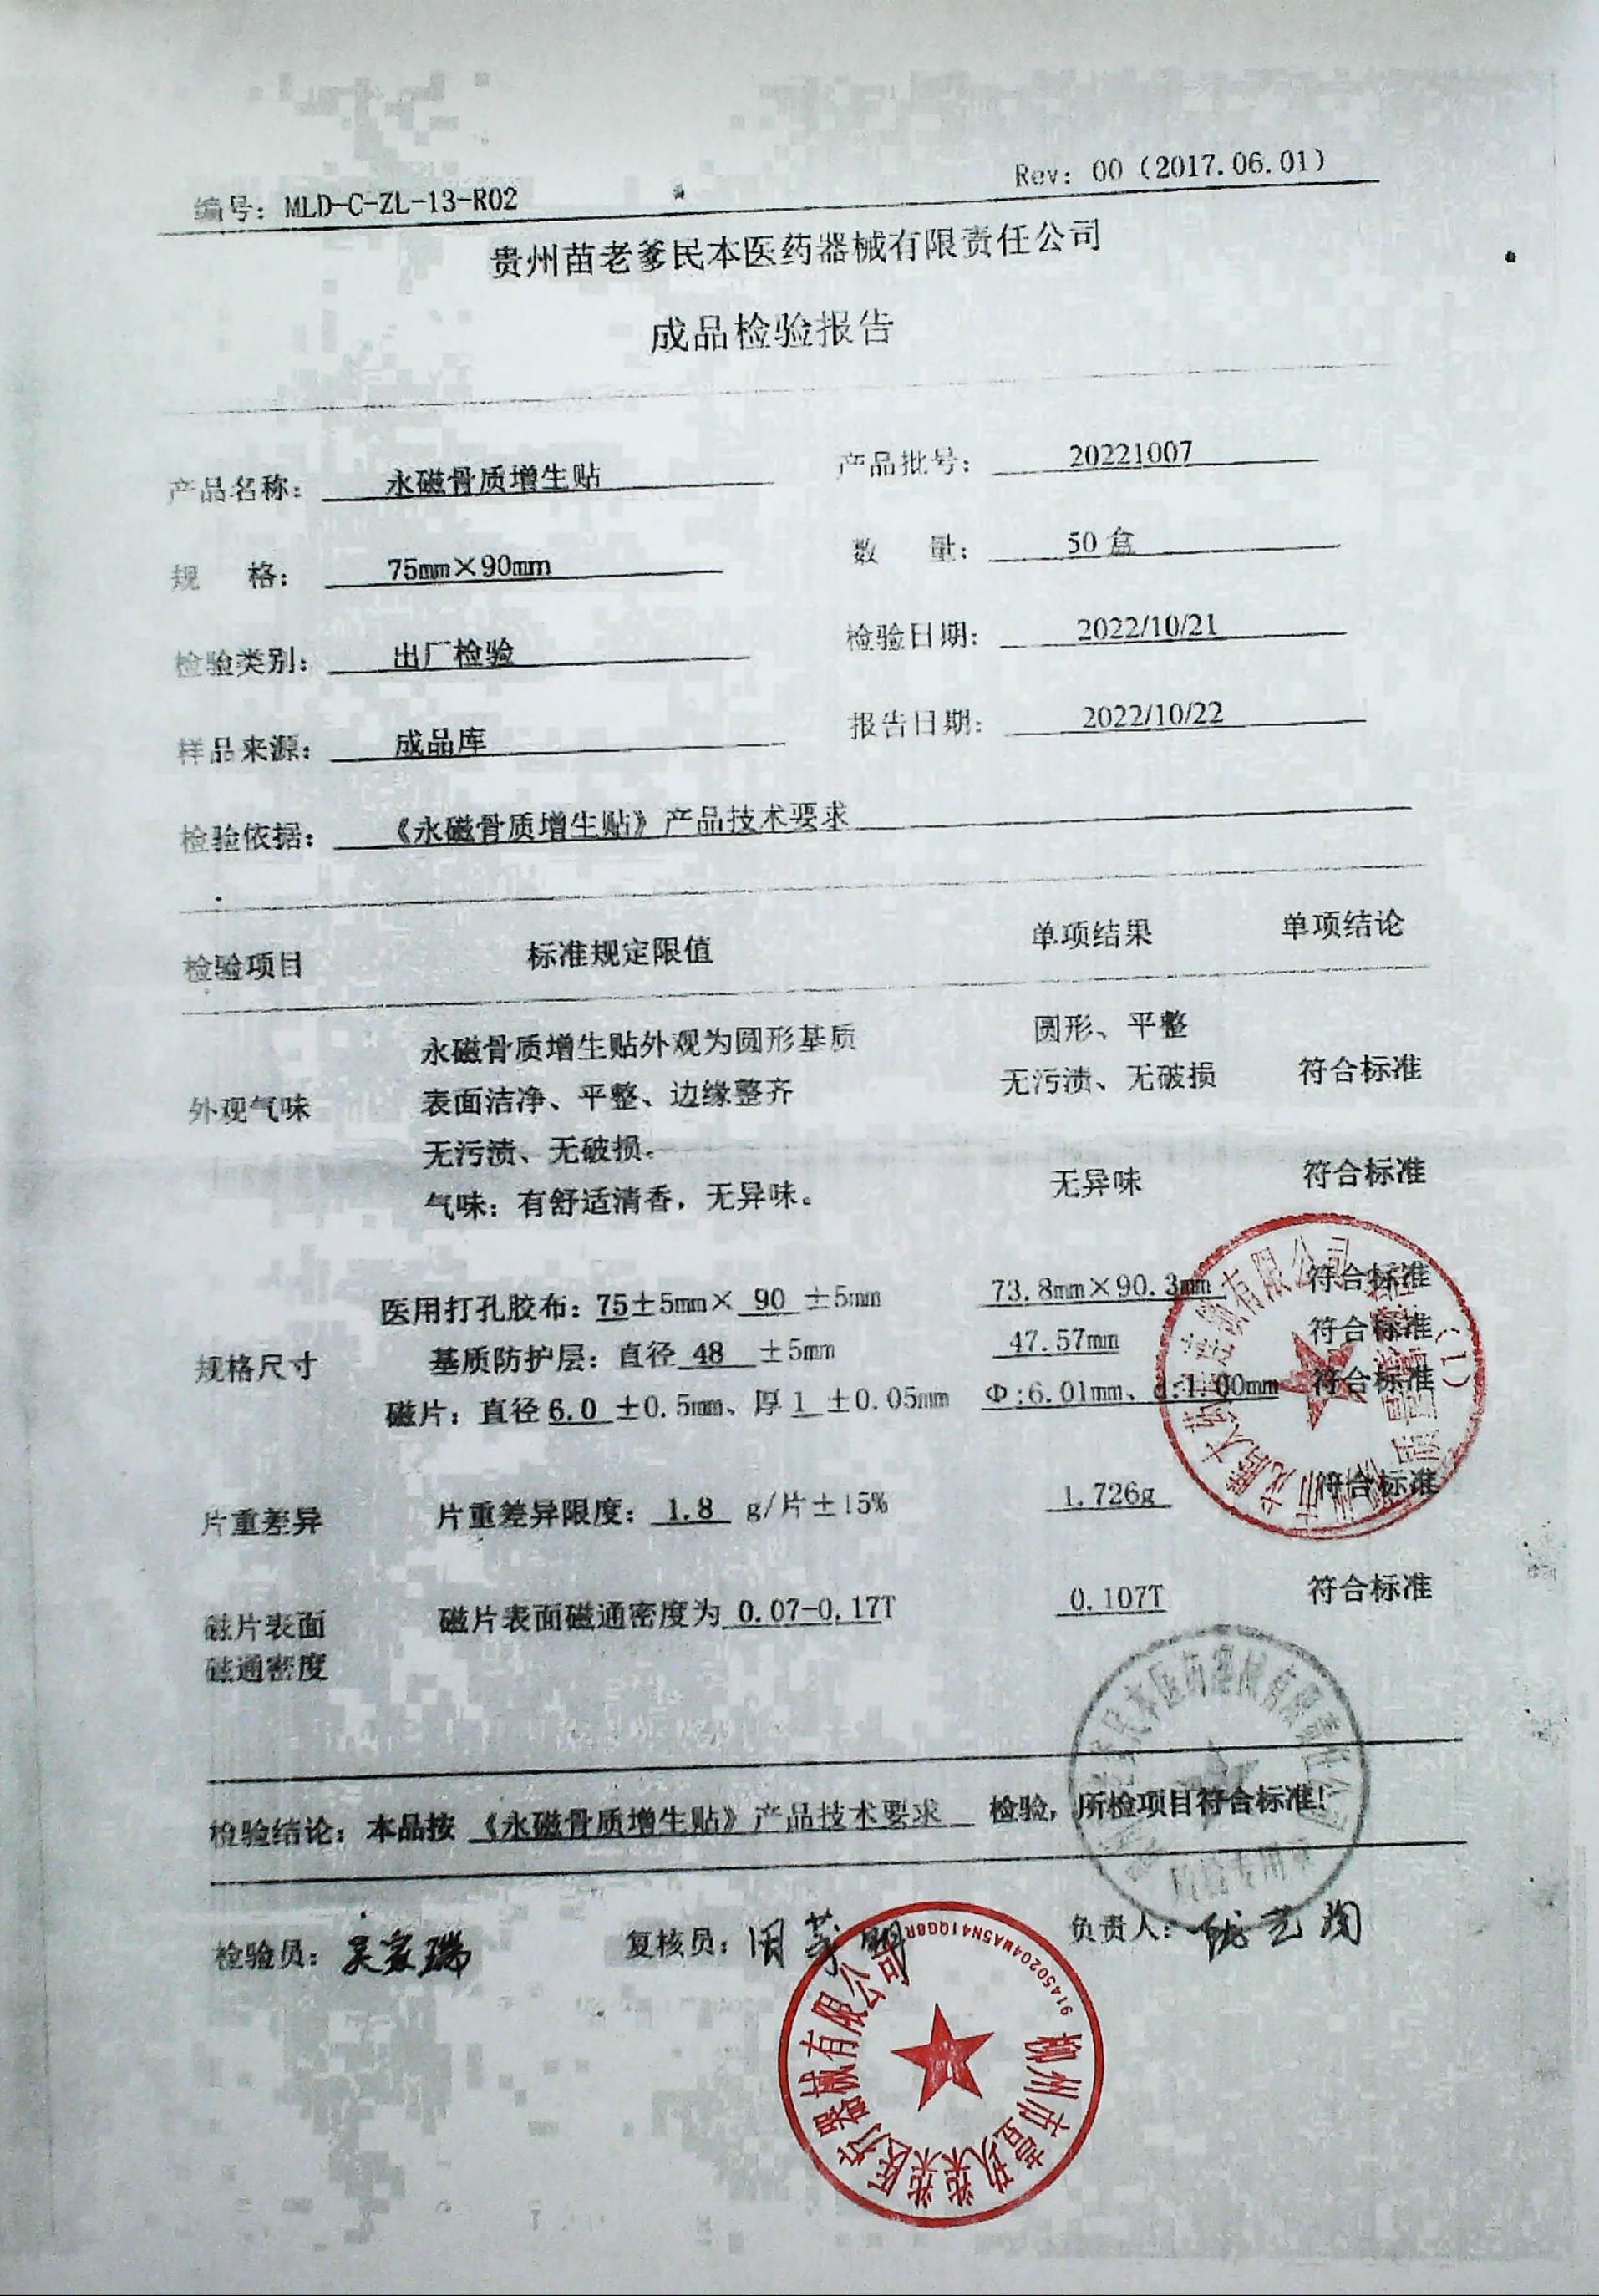 编号：MLD-C-ZL-13-R02 Rev：00（2017.06.01）
贵州苗老爹民本医药器械有限责任公司
成品检验报告
产品名称： 永磁骨质增生贴 产品批号： 20221007
规 格： 75mm×90mm 数 量： 50 盒
检验类别： 出厂检验 检验日期： 2022/10/21
样品来源： 成品库 报告日期： 2022/10/22
检验依据： 《永磁骨质增生贴》产品技术要求
检验项目 标准规定限值 单项结果 单项结论
永磁骨质增生贴外观为圆形基质 圆形、平整
外观气味 表面洁净、平整、边缘整齐 无污渍、无破损 符合标准
无污渍、无破损。
气味：有舒适清香，无异味。 无异味 符合标准
医用打孔胶布：75±5mm× 90 ±5mm 73.8mm×90.3mm 符合标准
规格尺寸 基质防护层：直径 48 ±5mm 47.57mm 符合标准
磁片：直径 6.0 ±0.5mm、厚 1 ±0.05mm Φ:6.01mm、d:1.00mm 符合标准
片重差异 片重差异限度： 1.8 g/片±15% 1.726g 符合标准
磁片表面 磁片表面磁通密度为 0.07-0.17T 0.107T 符合标准
磁通密度
检验结论：本品按 《永磁骨质增生贴》产品技术要求 检验，所检项目符合标准！
检验员：吴家瑞 复核员： 负责人：
民本医药器械有限责任公司
质检专用章
有限公司
(1)
柳州市壹玖柒柒医疗器械有限公司
91450204MA5N41QG8R